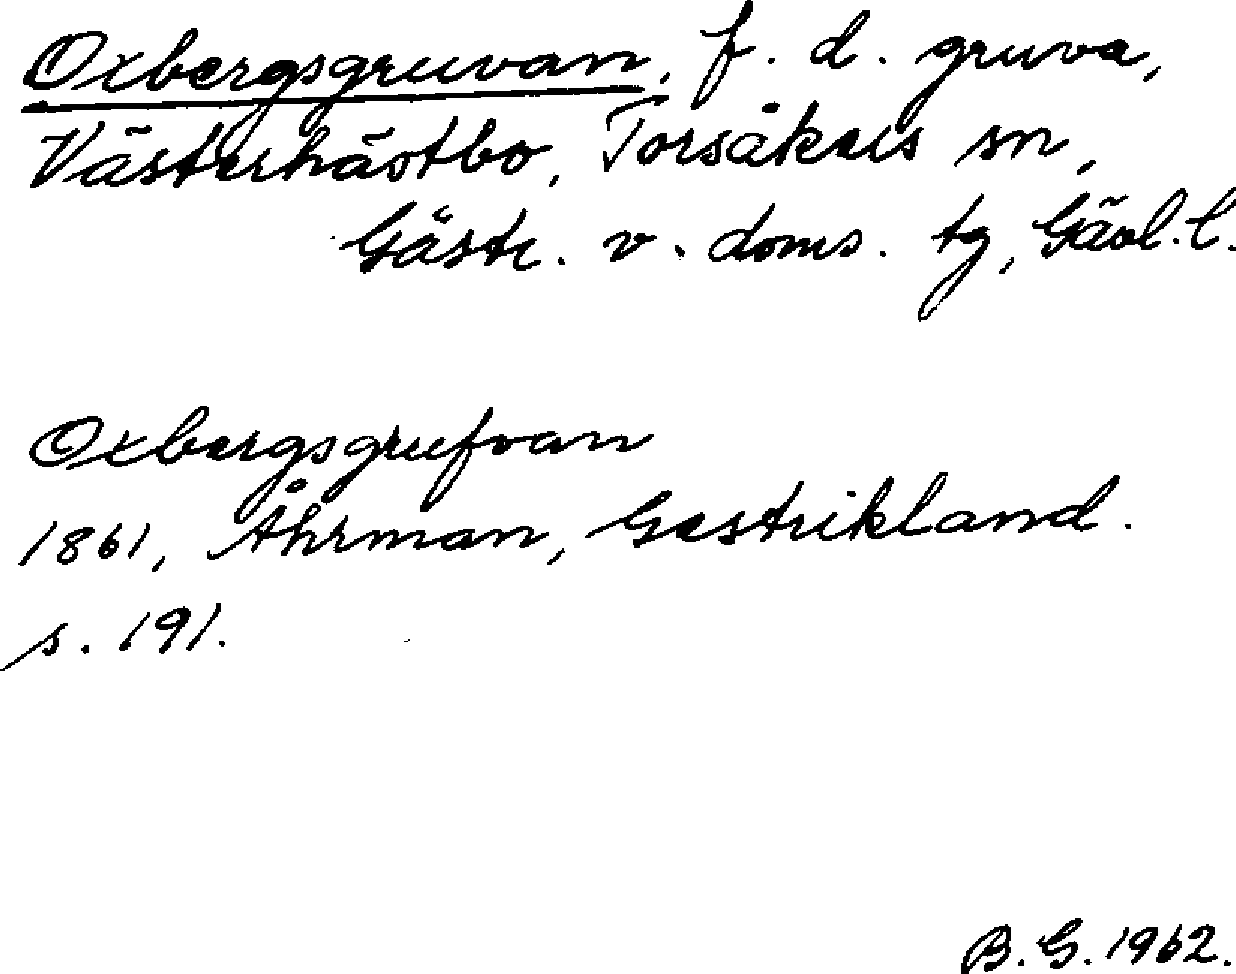 Oxbergsgruvan, f. d. gruva,
Västerhästbo, Torsåkers sn,
Gästr. v. doms. tg, Gävl. l.
Oxbergsgrufvan
1861, Åhrman, Gestrikland.
s. 191.
B. G. 1962.